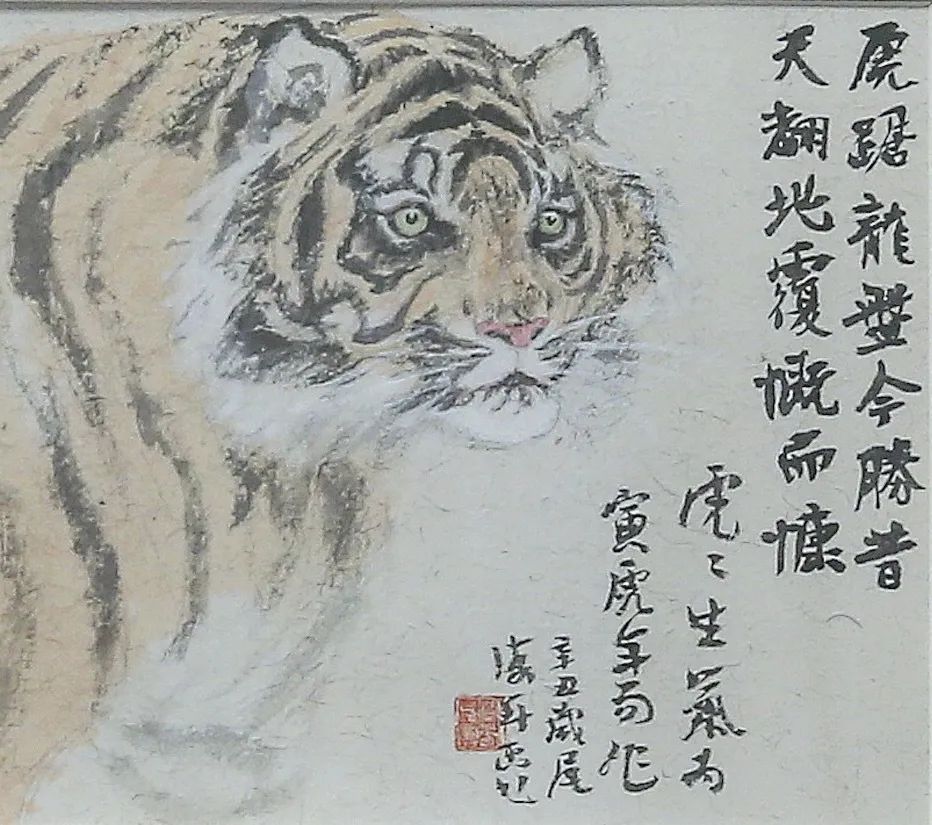 虎踞龍盤今勝昔
天翻地覆慨而慷
虎〻生氣为
寅虎年而作
辛丑歲尾
海